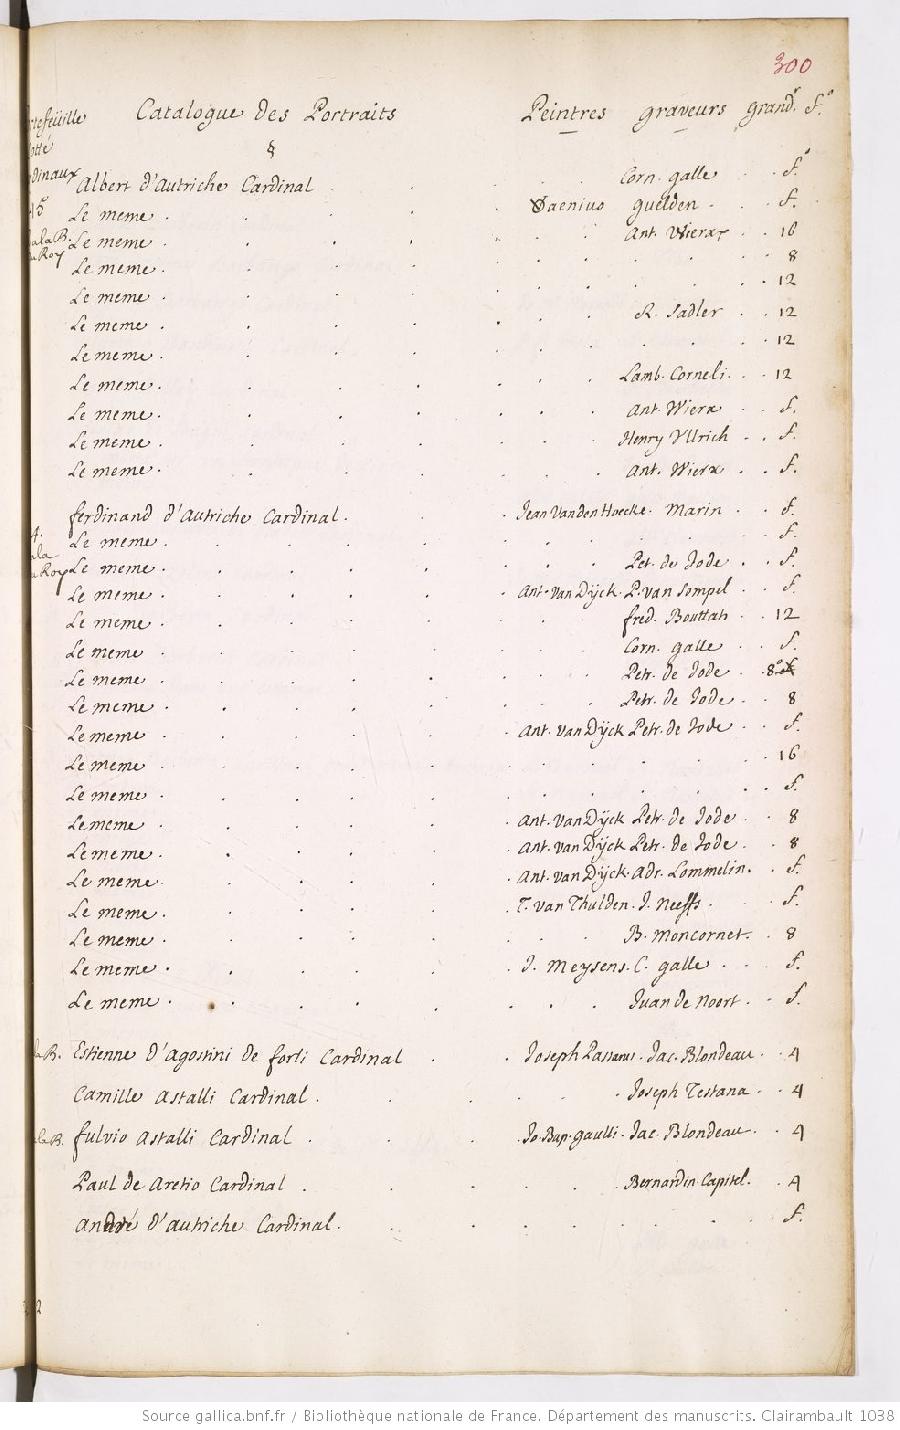 300
Catalogue des Portraits Peintres graveurs grandr. f.o
§
Albert d'Autriche Cardinal . . . Corn. galle . . f.o
Le meme . . . . guelden . . f.
Le meme . . . . Ant. Wierx . . 16
Le meme . . . . . . 8
Le meme . . . . . . 12
Le meme . . . . R. Sadler . . 12
Le meme . . . . . . 12
Le meme . . . . Lamb. Corneli . . 12
Le meme . . . . Ant. Wierx . . f.
Le meme . . . . Henry Ullrich . . f.
Le meme . . . . Ant. Wierx . . f.
ferdinand d'Autriche Cardinal . . . Jean Van den Hoecke . Marin . . f.
Le meme . . . . . . f.
Le meme . . . . Pet. de Jode . . f.
Le meme . . . . Ant. van Dÿck . P. van Sompel . . f.
Le meme . . . . fred. Bouttats . . 12
Le meme . . . . Corn. galle . . f.
Le meme . . . . Petr. de Jode . . 8o
Le meme . . . . Petr. de Jode . . 8
Le meme . . . . Ant. van Dÿck Petr. de Jode . . f.
Le meme . . . . . . 16
Le meme . . . . . . f.
Le meme . . . . Ant. van Dÿck Petr. de Jode . . 8
Le meme . . . . Ant. van Dÿck Petr. de Jode . . 8
Le meme . . . . Ant. van Dÿck . Adr. Lommelin . . f.
Le meme . . . . T. van Thulden . J. Neeffs . . f.
Le meme . . . . B. Moncornet . . 8
Le meme . . . . J. Meysens . C. galle . . f.
Le meme . . . . Juan de Noort . . f.
Estienne d'Agostini de forli Cardinal . . Joseph Passarus . Jac. Blondeau . . 4
Camille Astalli Cardinal . . . Joseph Testana . . 4
fulvio Astalli Cardinal . . . Jo. Bap. gaulli . Jac. Blondeau . . 4
Paul de Aretio Cardinal . . . Bernardin Capitel . . 4
André d'autriche Cardinal . . . . f.
Source gallica.bnf.fr / Bibliothèque nationale de France. Département des manuscrits. Clairambault 1038